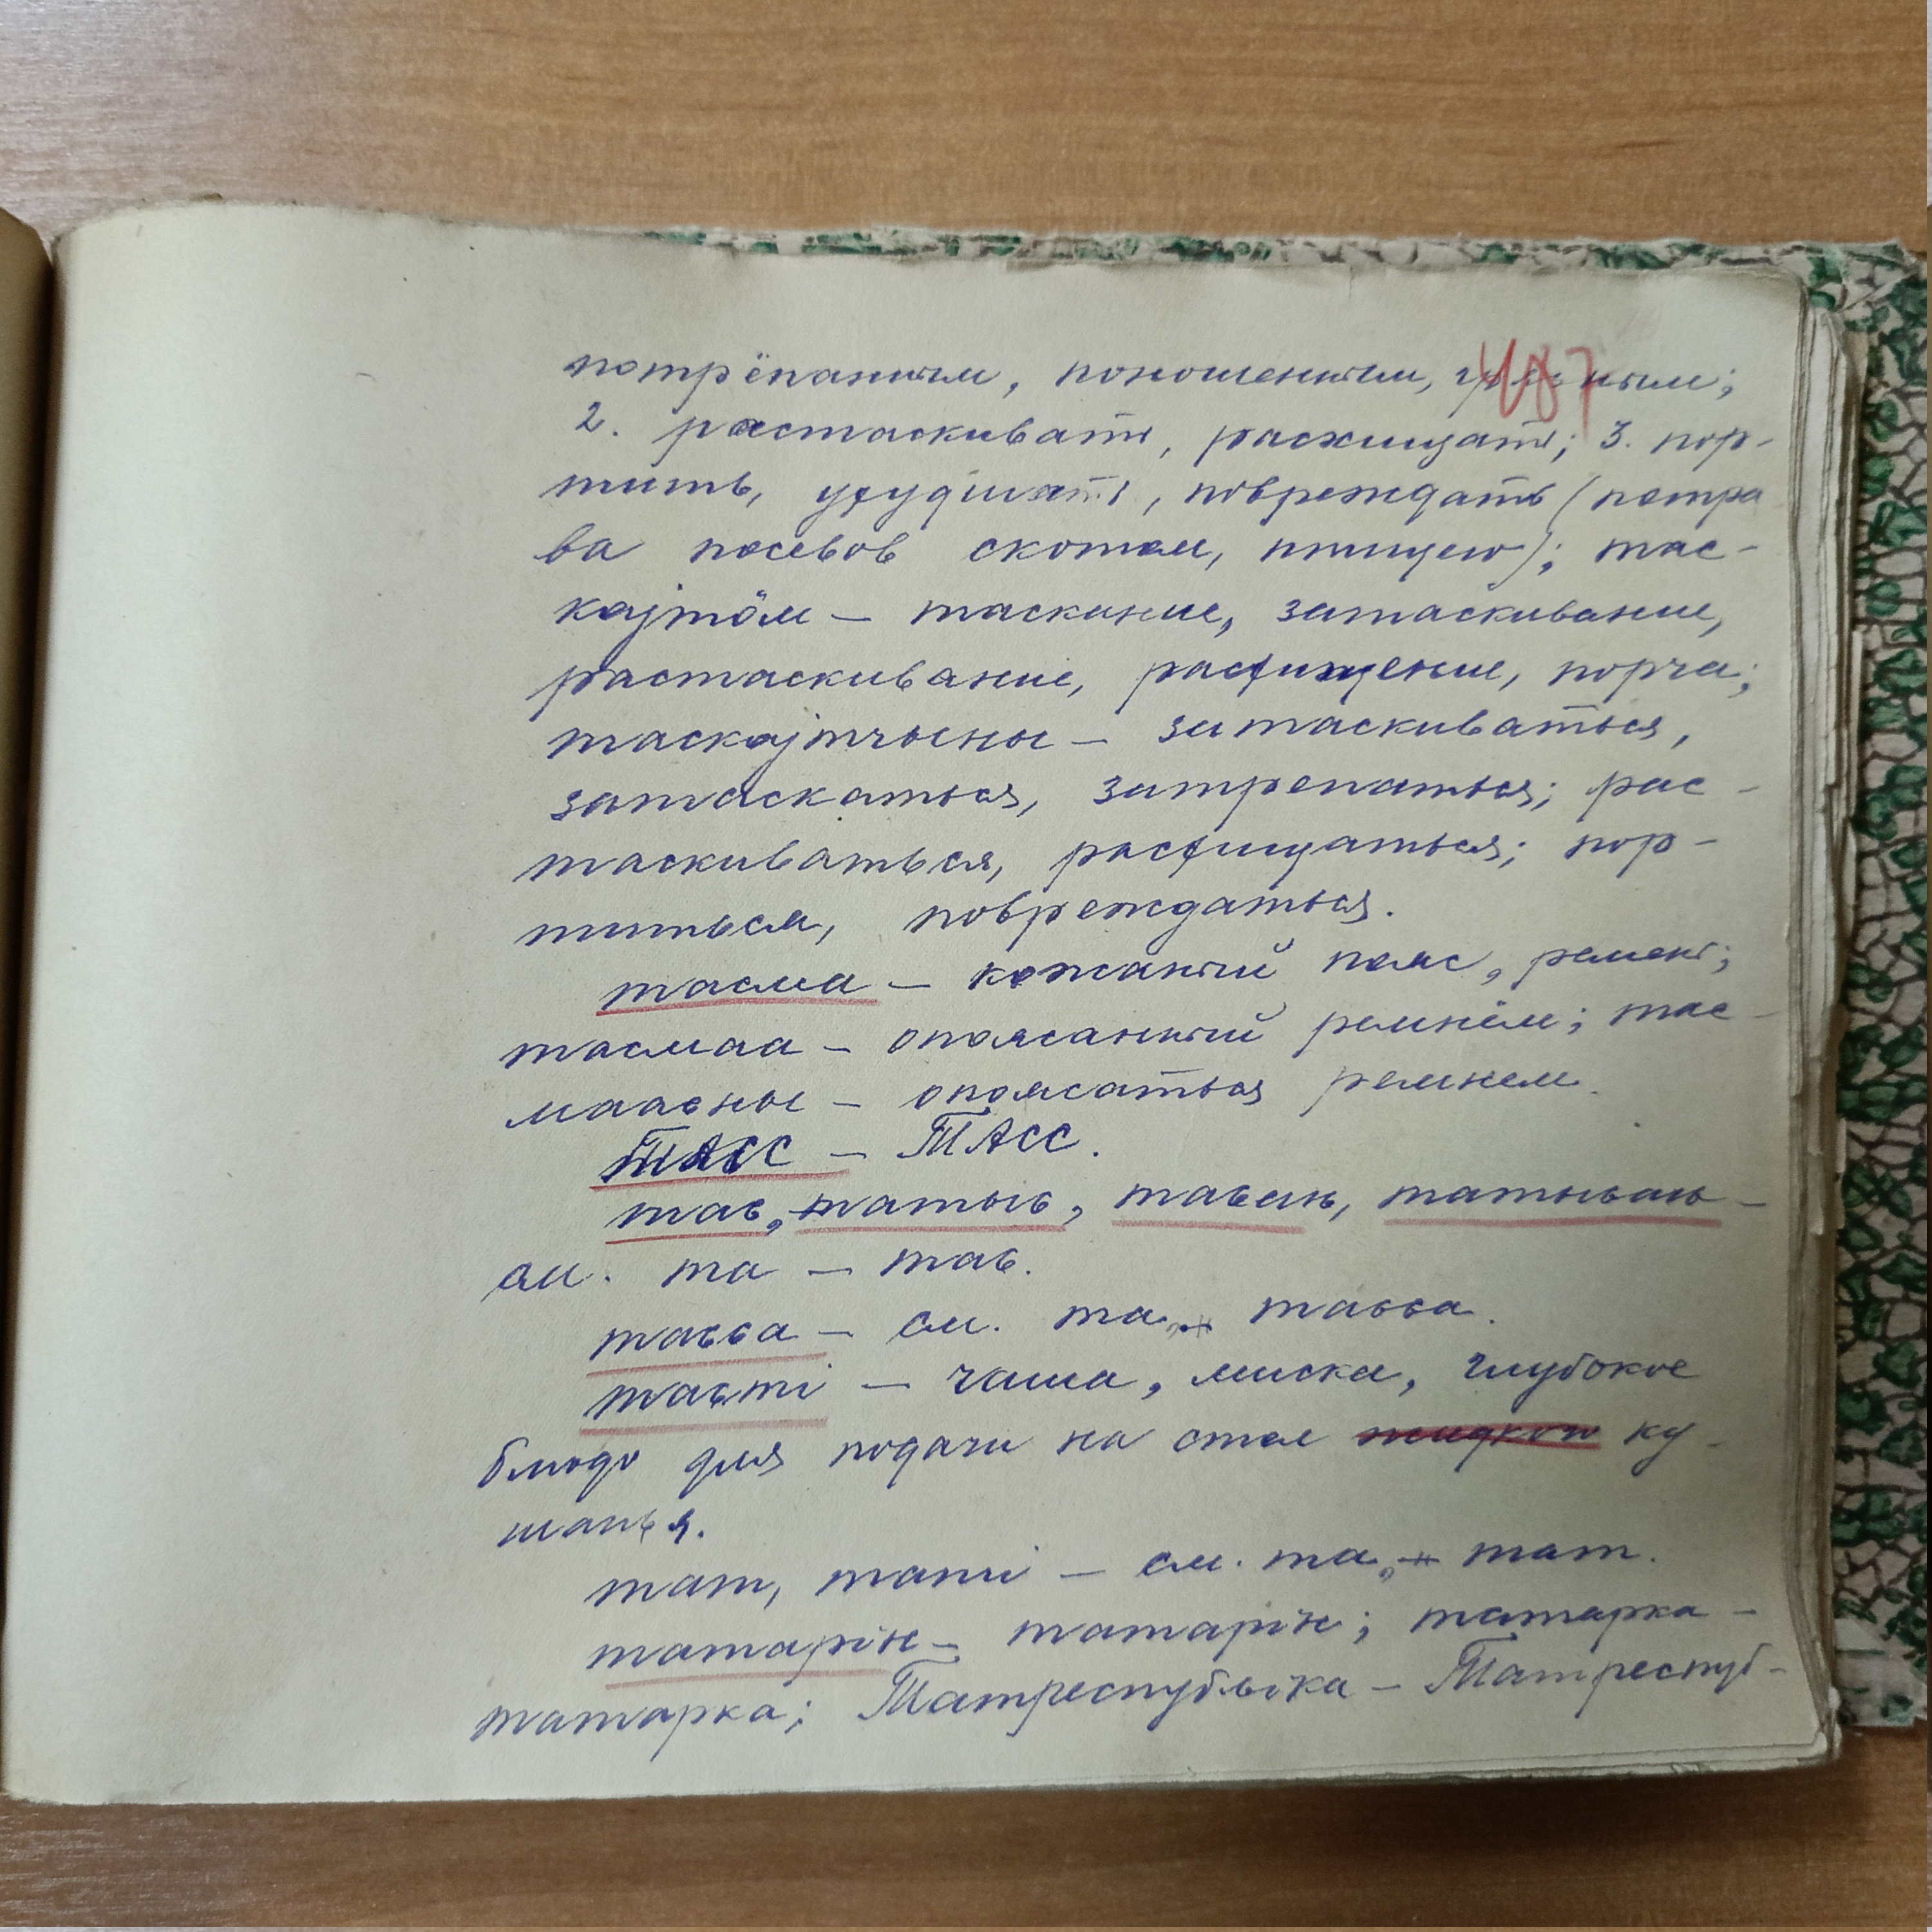 487
потрёпанным, поношенным, грязным;
2. растаскивать, расхищать; 3. пор-
тить, ухудшать, повреждать (потра
ва посевов скотом, птицею); тас-
кајтӧм – таскание, затаскивание,
растаскивание, расхищение, порча;
таскајтчыны – затаскиваться,
затаскаться, затрепаться; рас-
таскиваться, расхищаться; пор-
титься, повреждаться.
тасма – кожаный пояс, ремень;
тасмаа – опоясанный ремнём; тас-
маасны – опоясаться ремнем.
ТАСС – ТАСС.
см. та –
– см. та,
– чаша, миска, глубокое
блюдо для подачи на стол жидкого ку-
шанья.
тат, таті – см. та, тат.
татарін – татарін; татарка –
татарка; Татреспублыка – Татреспуб-